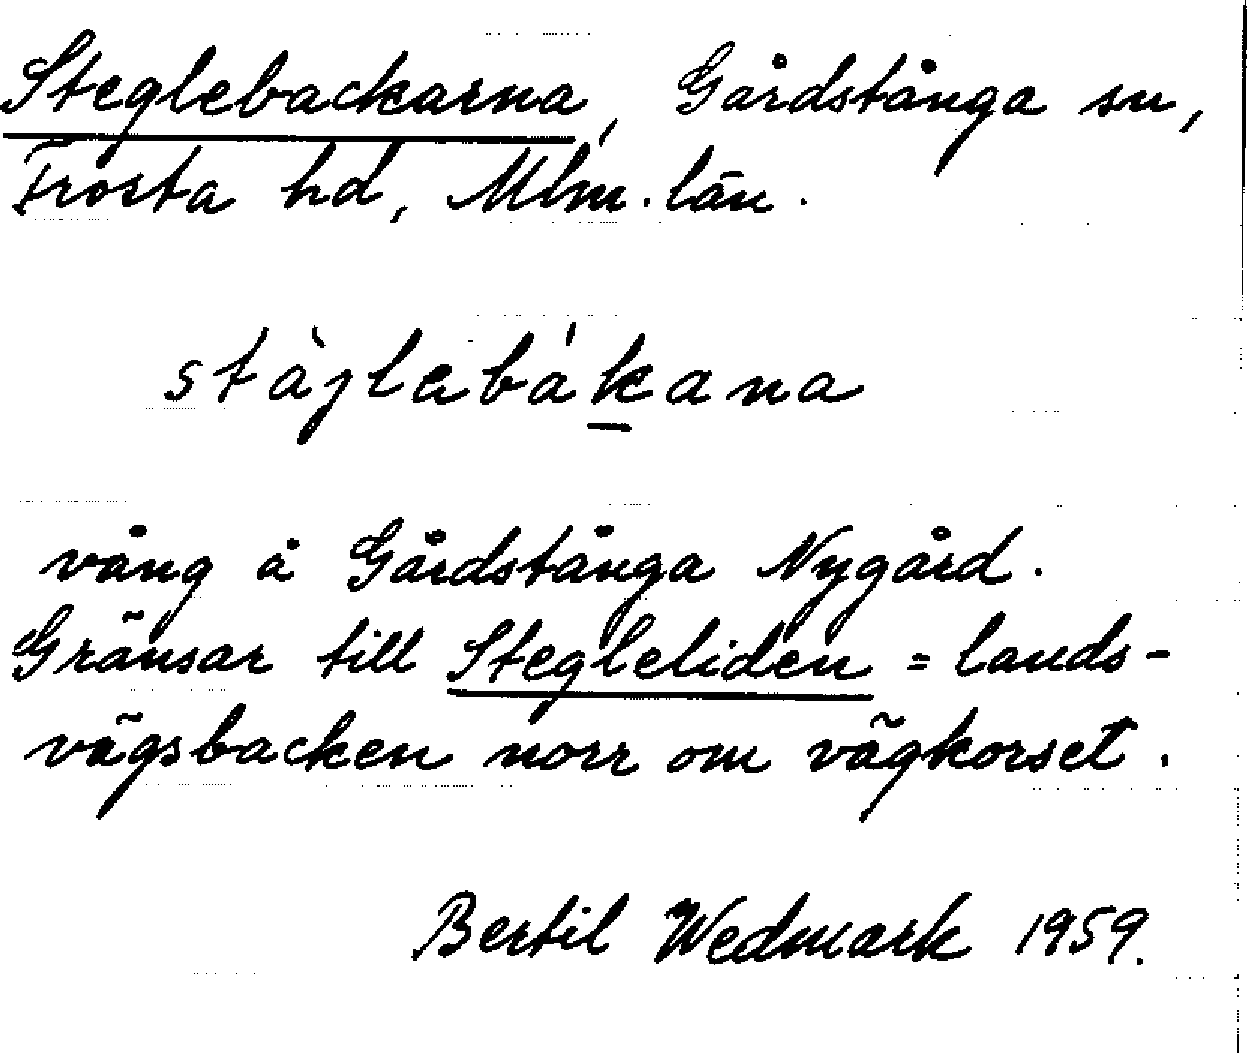 Steglebackarna, Gårdstånga sn,
Frosta hd, Mlm. län.
stàjlebákana
vång å Gårdstånga Nygård.
Gränsar till Stegleliden = lands-
vägsbacken norr om vägkorset.
Bertil Wedmark 1959.